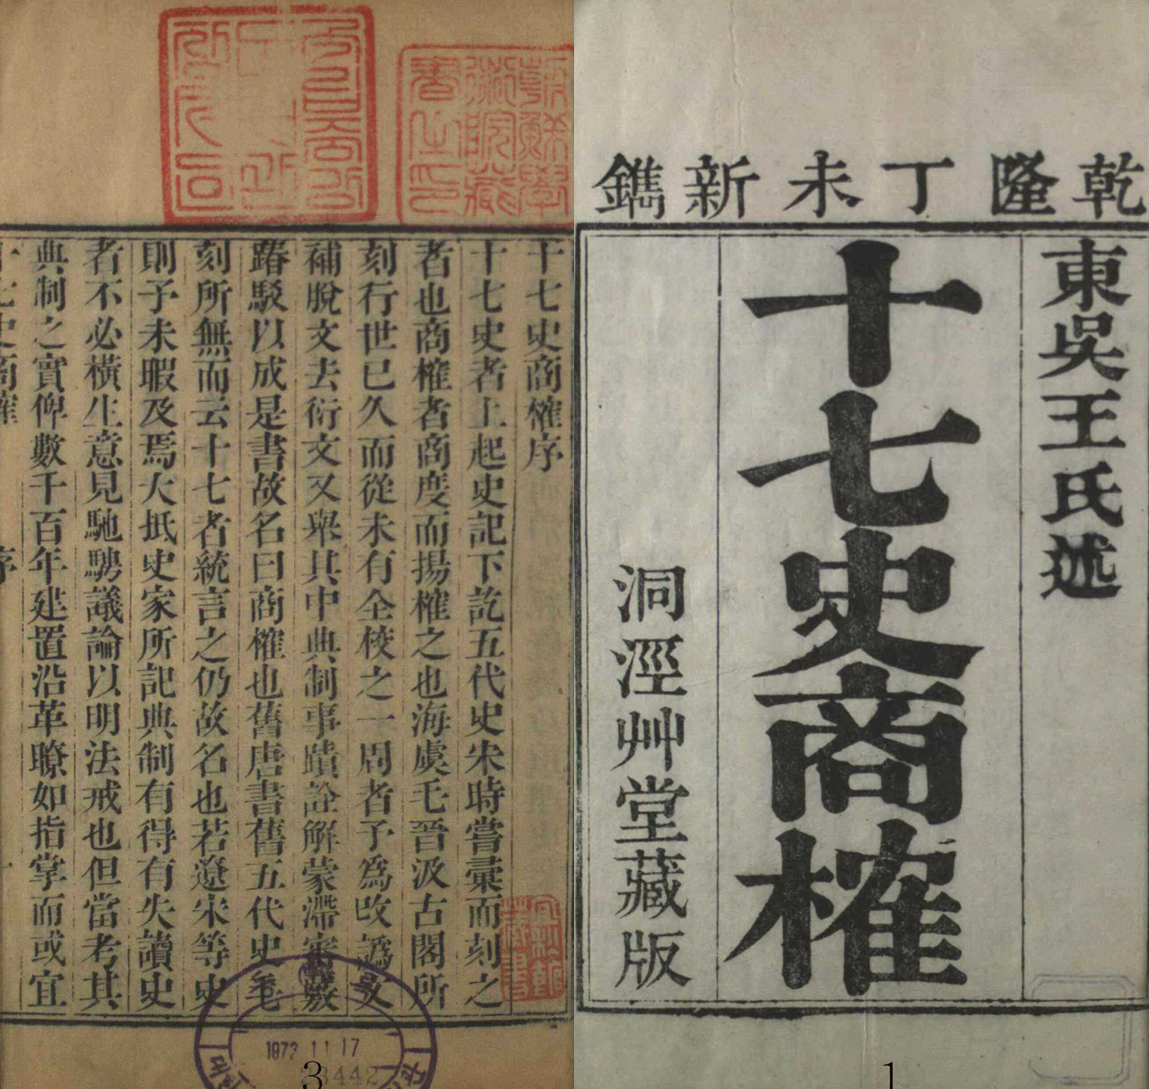 乾隆丁未新鐫
東吳王氏述
十七史商榷
洞涇艸堂藏版
1
朝鮮學術院藏書之印
十七史商榷序
十七史者上起史記下訖五代史宋時嘗彙而刻之
者也商榷者商度而揚榷之也海虞毛晉汲古閣所
刻行世已久而從未有全校之一周者予為改譌文
補脫文去衍文又舉其中典制事蹟詮解蒙滯審覈
踳駁以成是書故名曰商榷也舊唐書舊五代史毛
刻所無而云十七者統言之仍故名也若遼宋等史
則予未暇及焉大抵史家所記典制有得有失讀史
者不必橫生意見馳騁議論以明法戒也但當考其
典制之實俾數千百年建置沿革瞭如指掌而或宜
十七史商榷 序 一
1973 11 17
3442
3